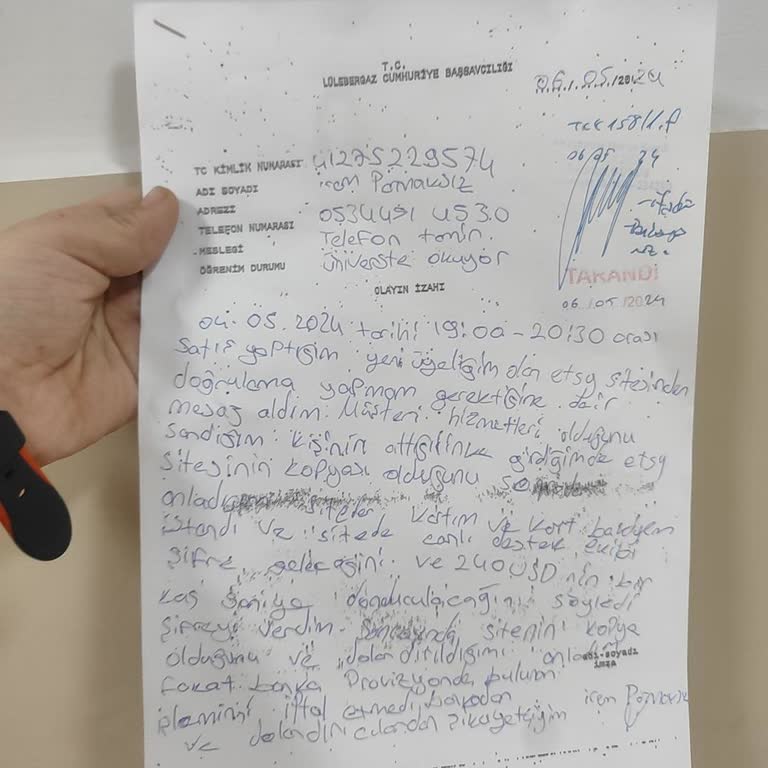 T.C.
LÜLEBERGAZ CUMHURİYE BAŞSAVCILIĞI
06.05/2024
TCK 158/1.f
06 05 24
TC KİMLİK NUMARASI 41275229574
ADI SOYADI irem Pomaksız
ADREZİ
TELEFON NUMARASI 0534491 4530
MESLEĞİ Telefon tamiri
ÖĞRENİM DURUMU üniverste okuyor
TAKANDI
06/05/2024
OLAYIN İZAHI
04.05.2024 tarihi 19:00-20:30 arası
Satış yaptığım yeni üyeliğim olan etsy sitesinden
doğrulama yapmam gerektiğine dair
mesaj aldım. Müşteri hizmetleri olduğunu
Sandığım kişinin attığı linke girdiğimde etsy
Sitesinin kopyası olduğunu
anladım siteden kartım ve kart bakiyem
istendi ve sitede canlı destek ekibi
Şifre geleceğini ve 240 USD nin bir
kaç saniye söyledi
Şifreyi verdim. sitenin kopya
olduğunu ve dolandırıldığımı anladım
adı-soyadı
imza
fakat banka Provizyonda bulunan
işlemimi iptal etmedi bankadan irem Pomaksız
ve dolandırıcılardan şikayetçiyim